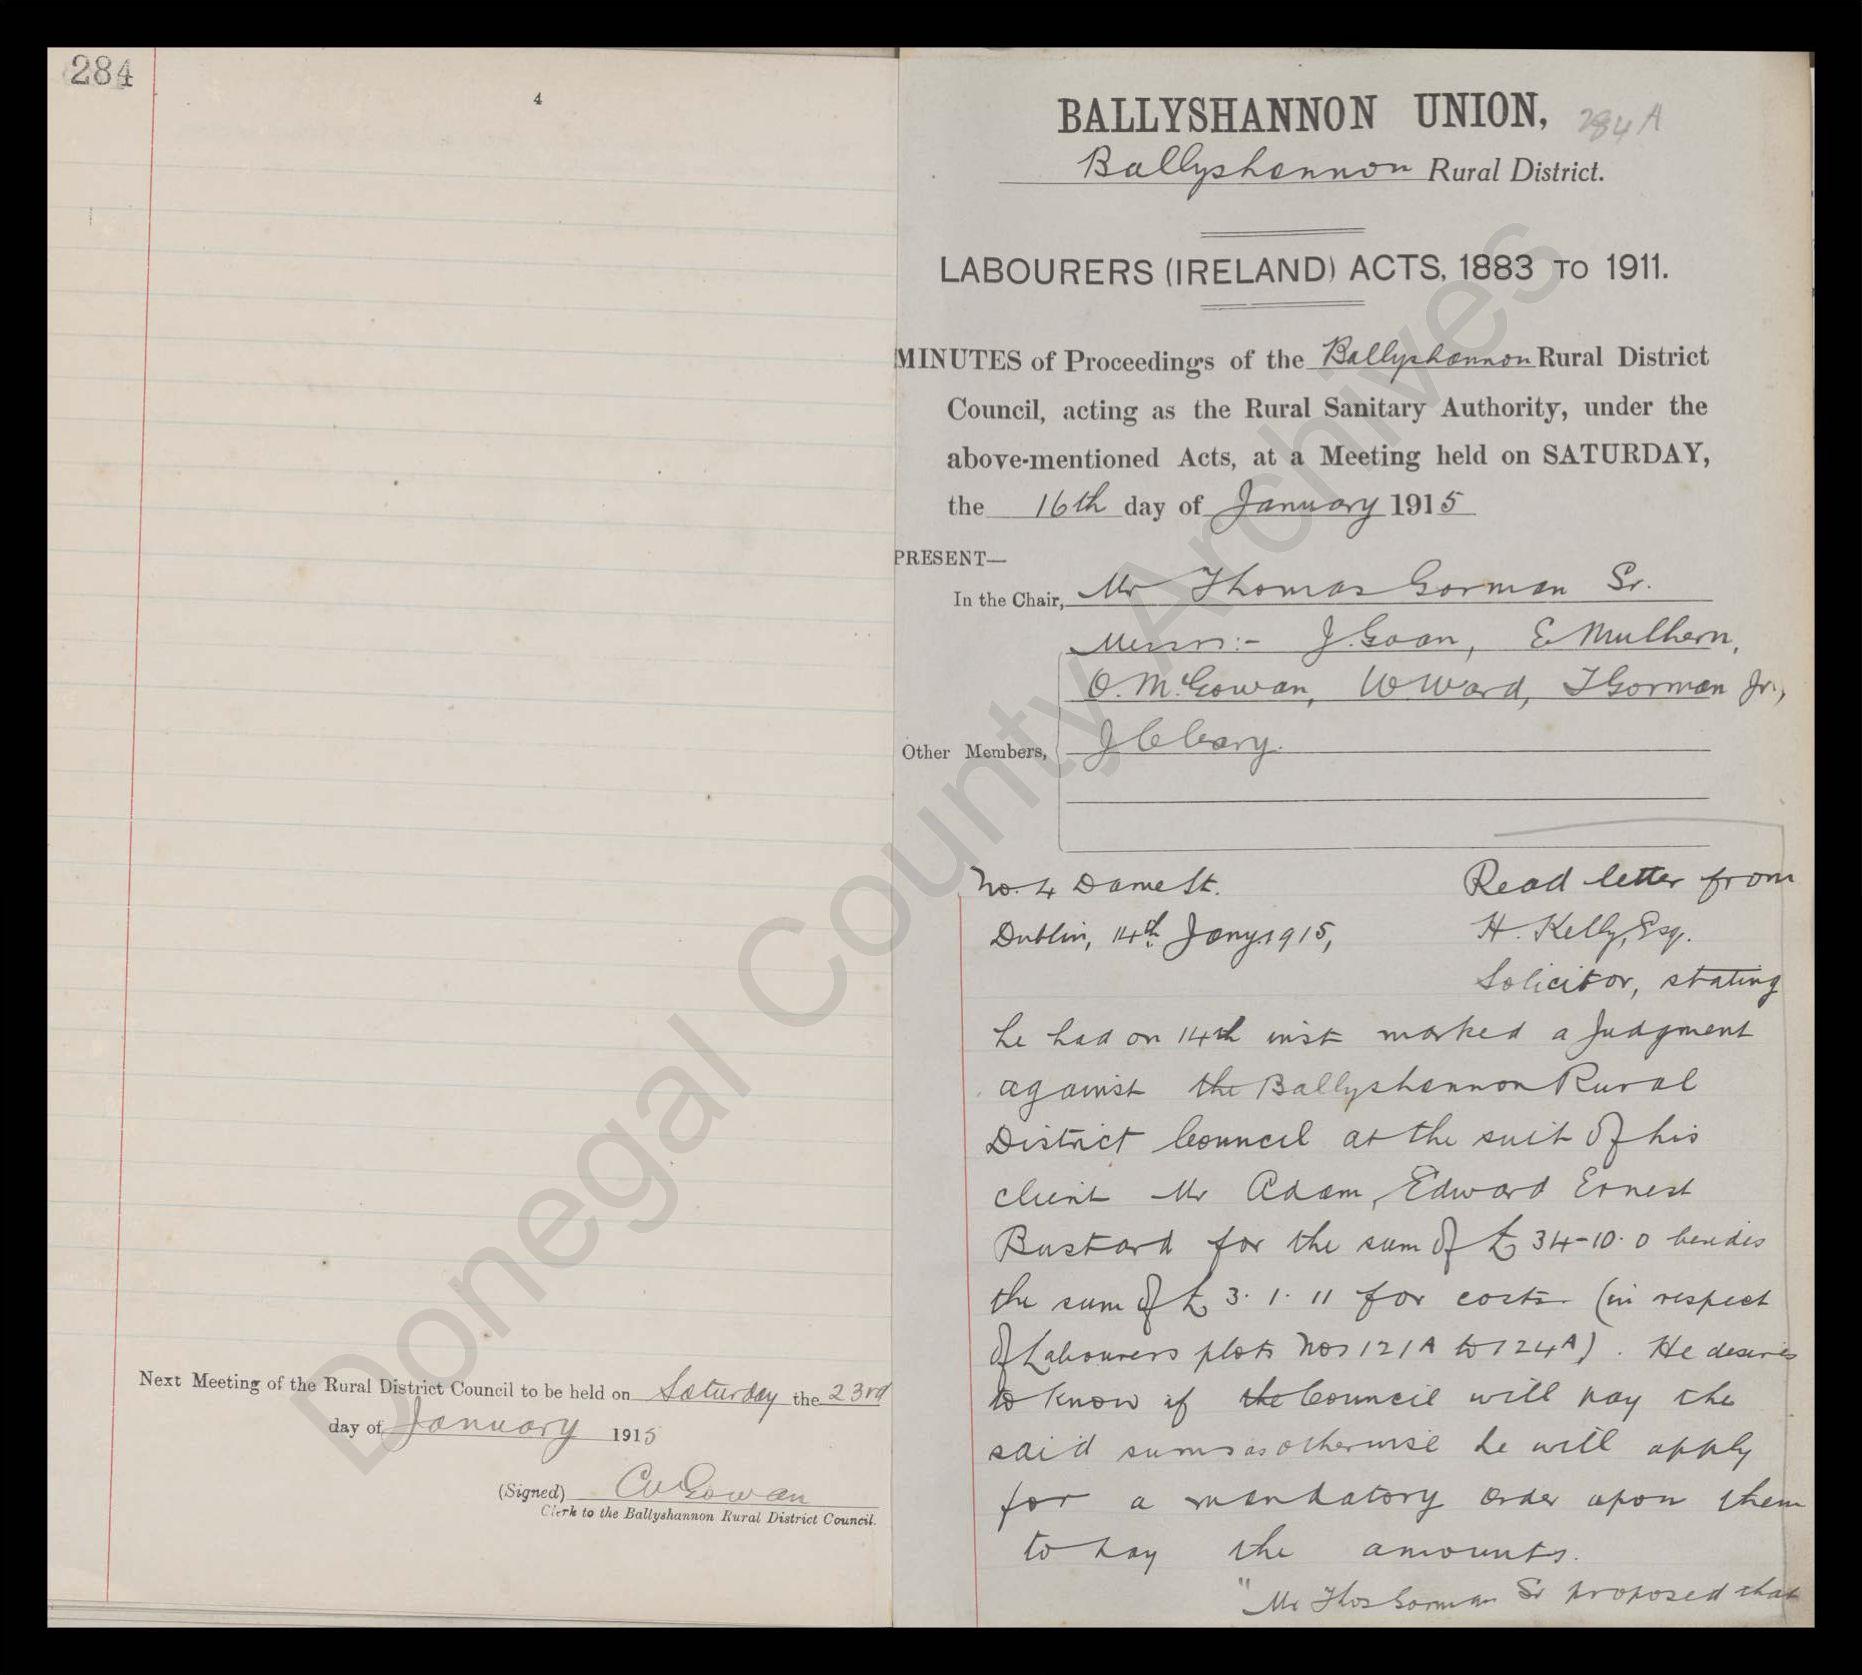 284
4
Next Meeting of the Rural District Council to be held on Saturday the 23rd
day of January 1915
(Signed) C McGowan
Clerk to the Ballyshannon Rural District Council.
BALLYSHANNON UNION,
284 A
Ballyshannon Rural District.
LABOURERS (IRELAND) ACTS, 1883 TO 1911.
MINUTES of Proceedings of the Ballyshannon Rural District
Council, acting as the Rural Sanitary Authority, under the
above-mentioned Acts, at a Meeting held on SATURDAY,
the 16th day of January 1915
PRESENT—
In the Chair, Mr Thomas Gorman Sr.
Messrs:- J. Goan, E Mulhern,
O. McGowan, W Ward, T Gorman Jr.,
Other Members, J Cleary.
No. 4 Dame St.
Dublin, 14th Jany 1915,
Read letter from
H. Kelly, Esq.
Solicitor, stating
he had on 14th inst marked a Judgment
against the Ballyshannon Rural
District Council at the suit of his
client Mr Adam, Edward Ernest
Bustard for the sum of £34-10.0 besides
the sum of £3.1.11 for costs (in respect
of Labourers plots Nos 121A to 124A). He desires
to know if the Council will pay the
said sums as otherwise he will apply
for a mandatory order upon them
to pay the amounts.
"Mr Thos Gorman Sr proposed that
Donegal County Archives